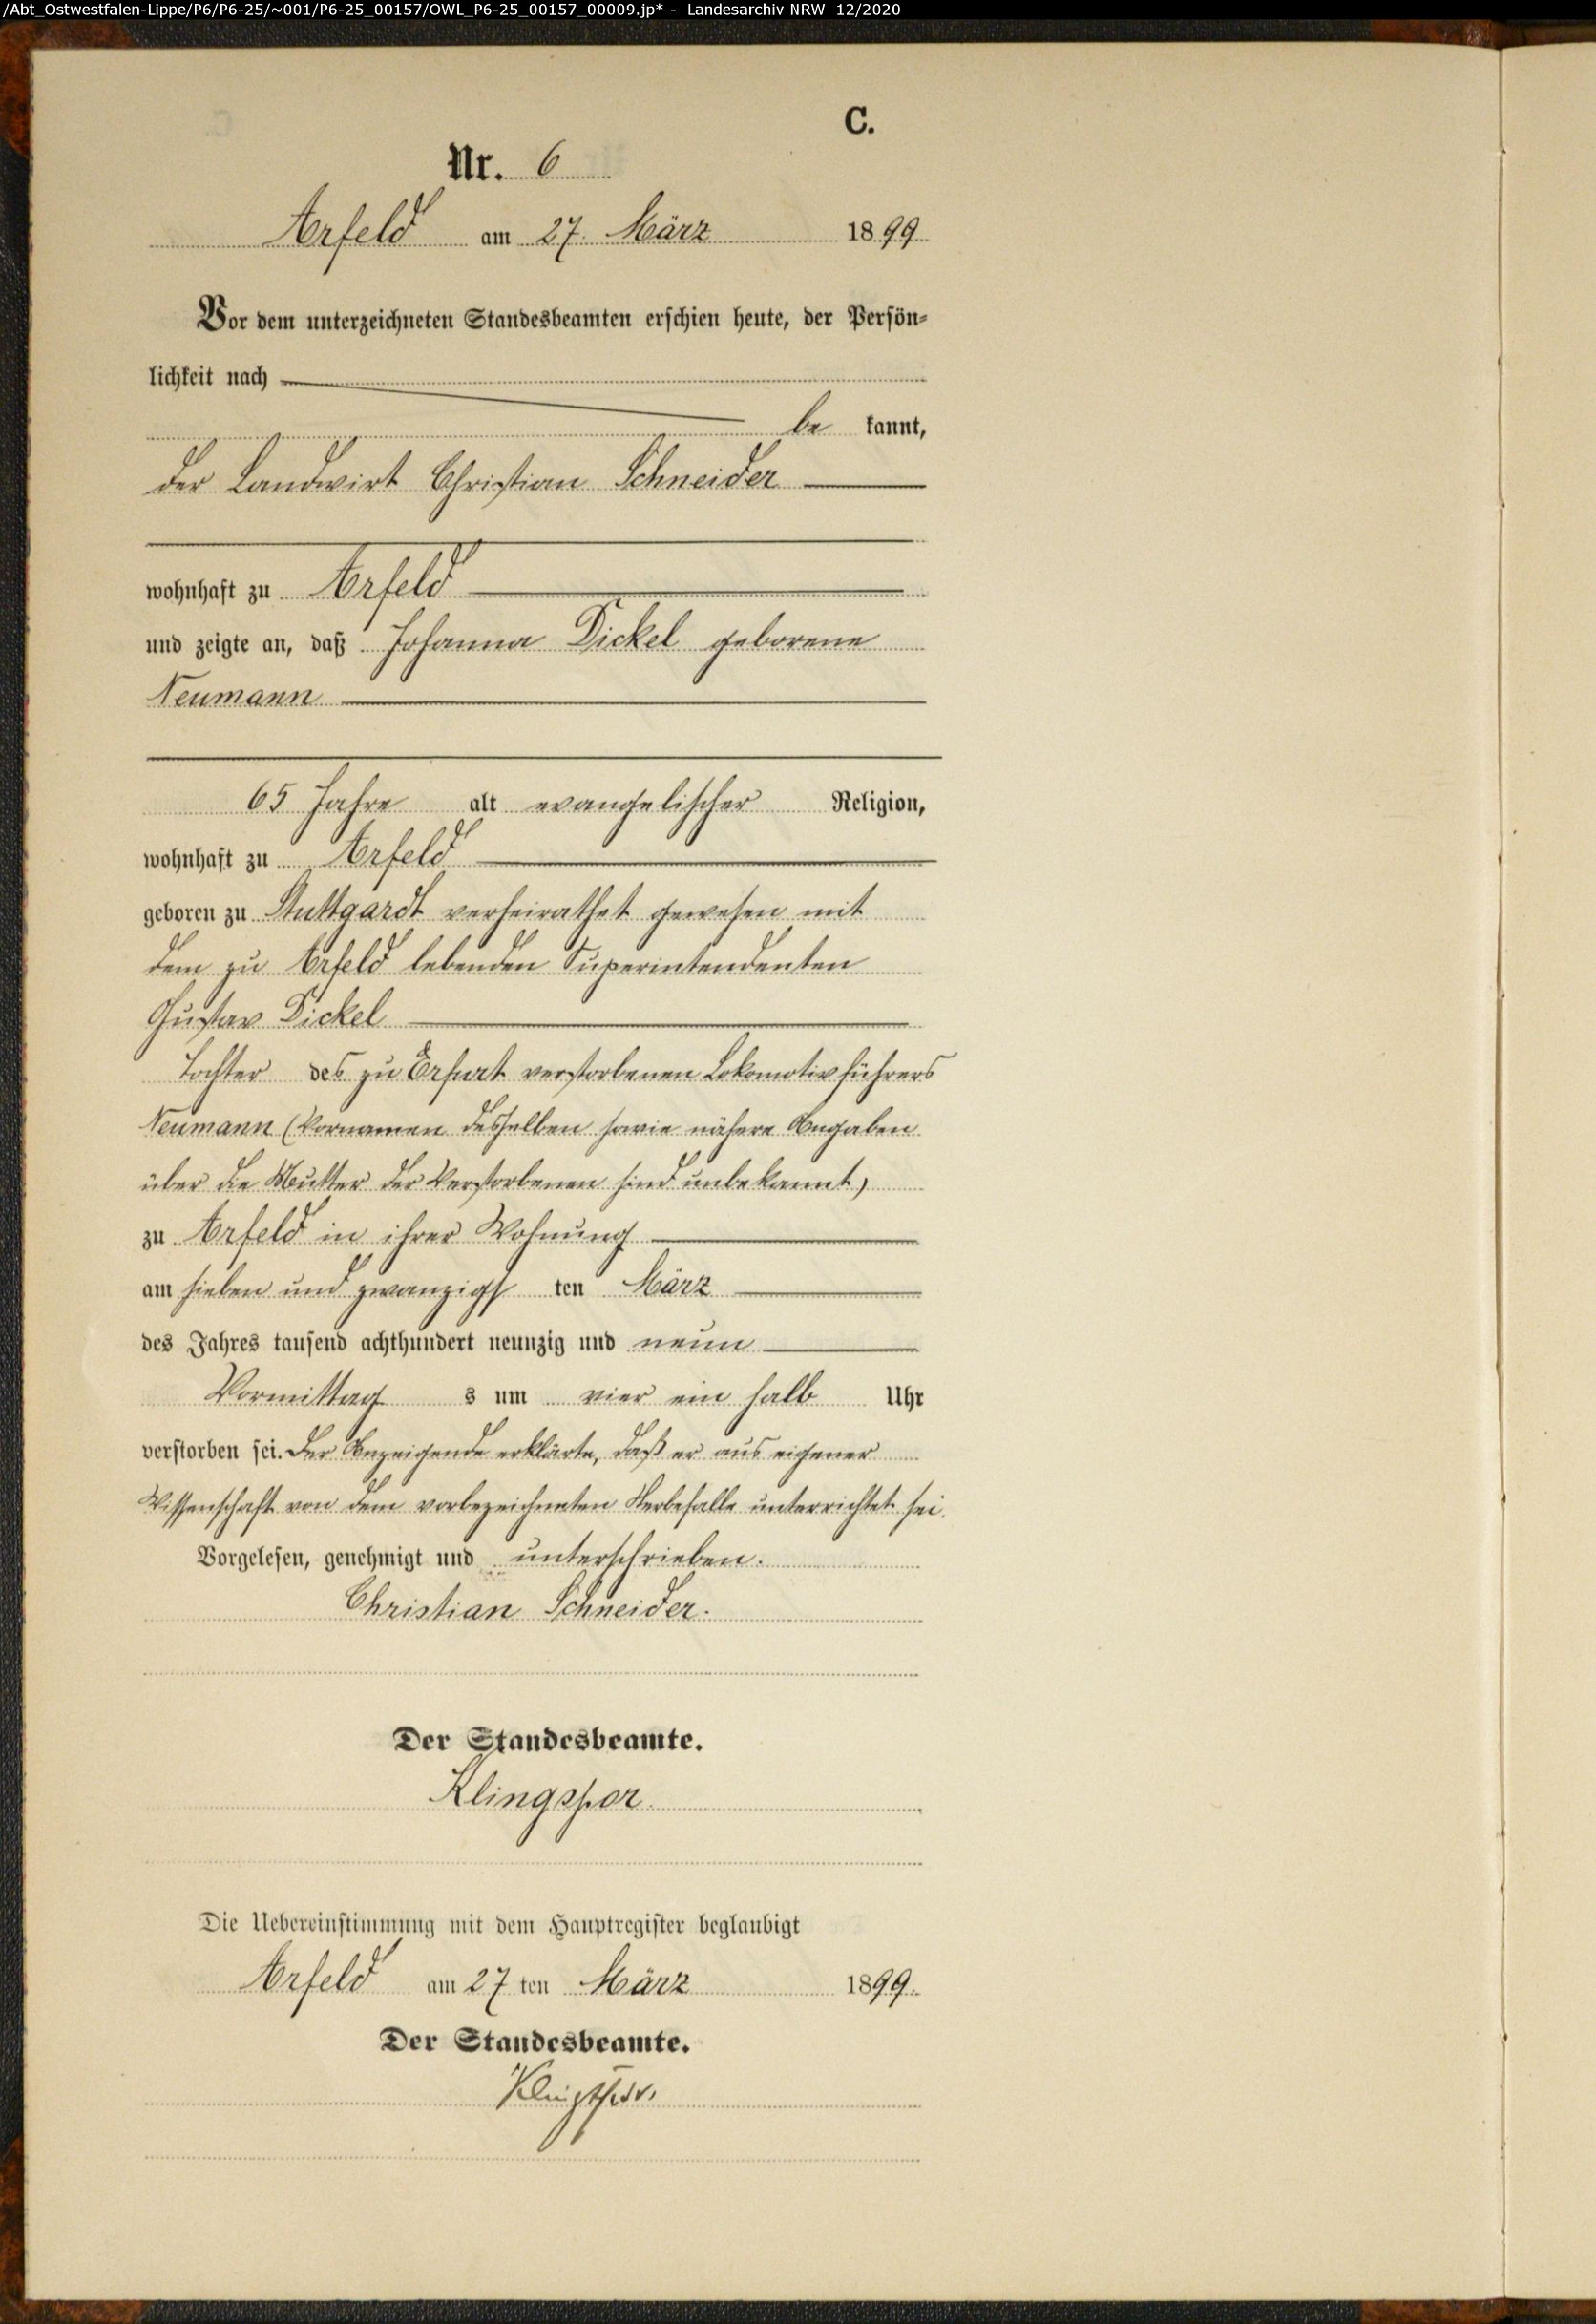 /Abt_Ostwestfalen-Lippe/P6/P6-25/~001/P6-25_00157/OWL_P6-25_00157_00009.jp* - Landesarchiv NRW 12/2020
C.
Nr. 6
Arfeld am 27. März 1899
Vor dem unterzeichneten Standesbeamten erschien heute, der Persön-
lichkeit nach
be kannt,
der Landwirt Christian Schneider
wohnhaft zu Arfeld
und zeigte an, daß Johanna Dickel geborene
Neumann
65 Jahre alt evangelischer Religion,
wohnhaft zu Arfeld
geboren zu Stuttgardt verheirathet gewesen mit
dem zu Arfeld lebenden Superintendenten
Gustav Dickel
Tochter des zu Erfurt verstorbenen Lokomotivführers
Neumann (Vornamen desselben sowie nähere Angaben
über die Mutter der Verstorbenen sind unbekannt)
zu Arfeld in ihrer Wohnung
am sieben und zwanzigs ten März
des Jahres tausend achthundert neunzig und neun
Vormittag s um vier ein halb Uhr
verstorben sei. Der Anzeigende erklärte, daß er aus eigener
Wissenschaft von dem vorbezeichneten Sterbefalle unterrichtet sei.
Vorgelesen, genehmigt und unterschrieben.
Christian Schneider.
Der Standesbeamte.
Klingspor
Die Uebereinstimmung mit dem Hauptregister beglaubigt
Arfeld am 27 ten März 1899.
Der Standesbeamte.
Klingspor